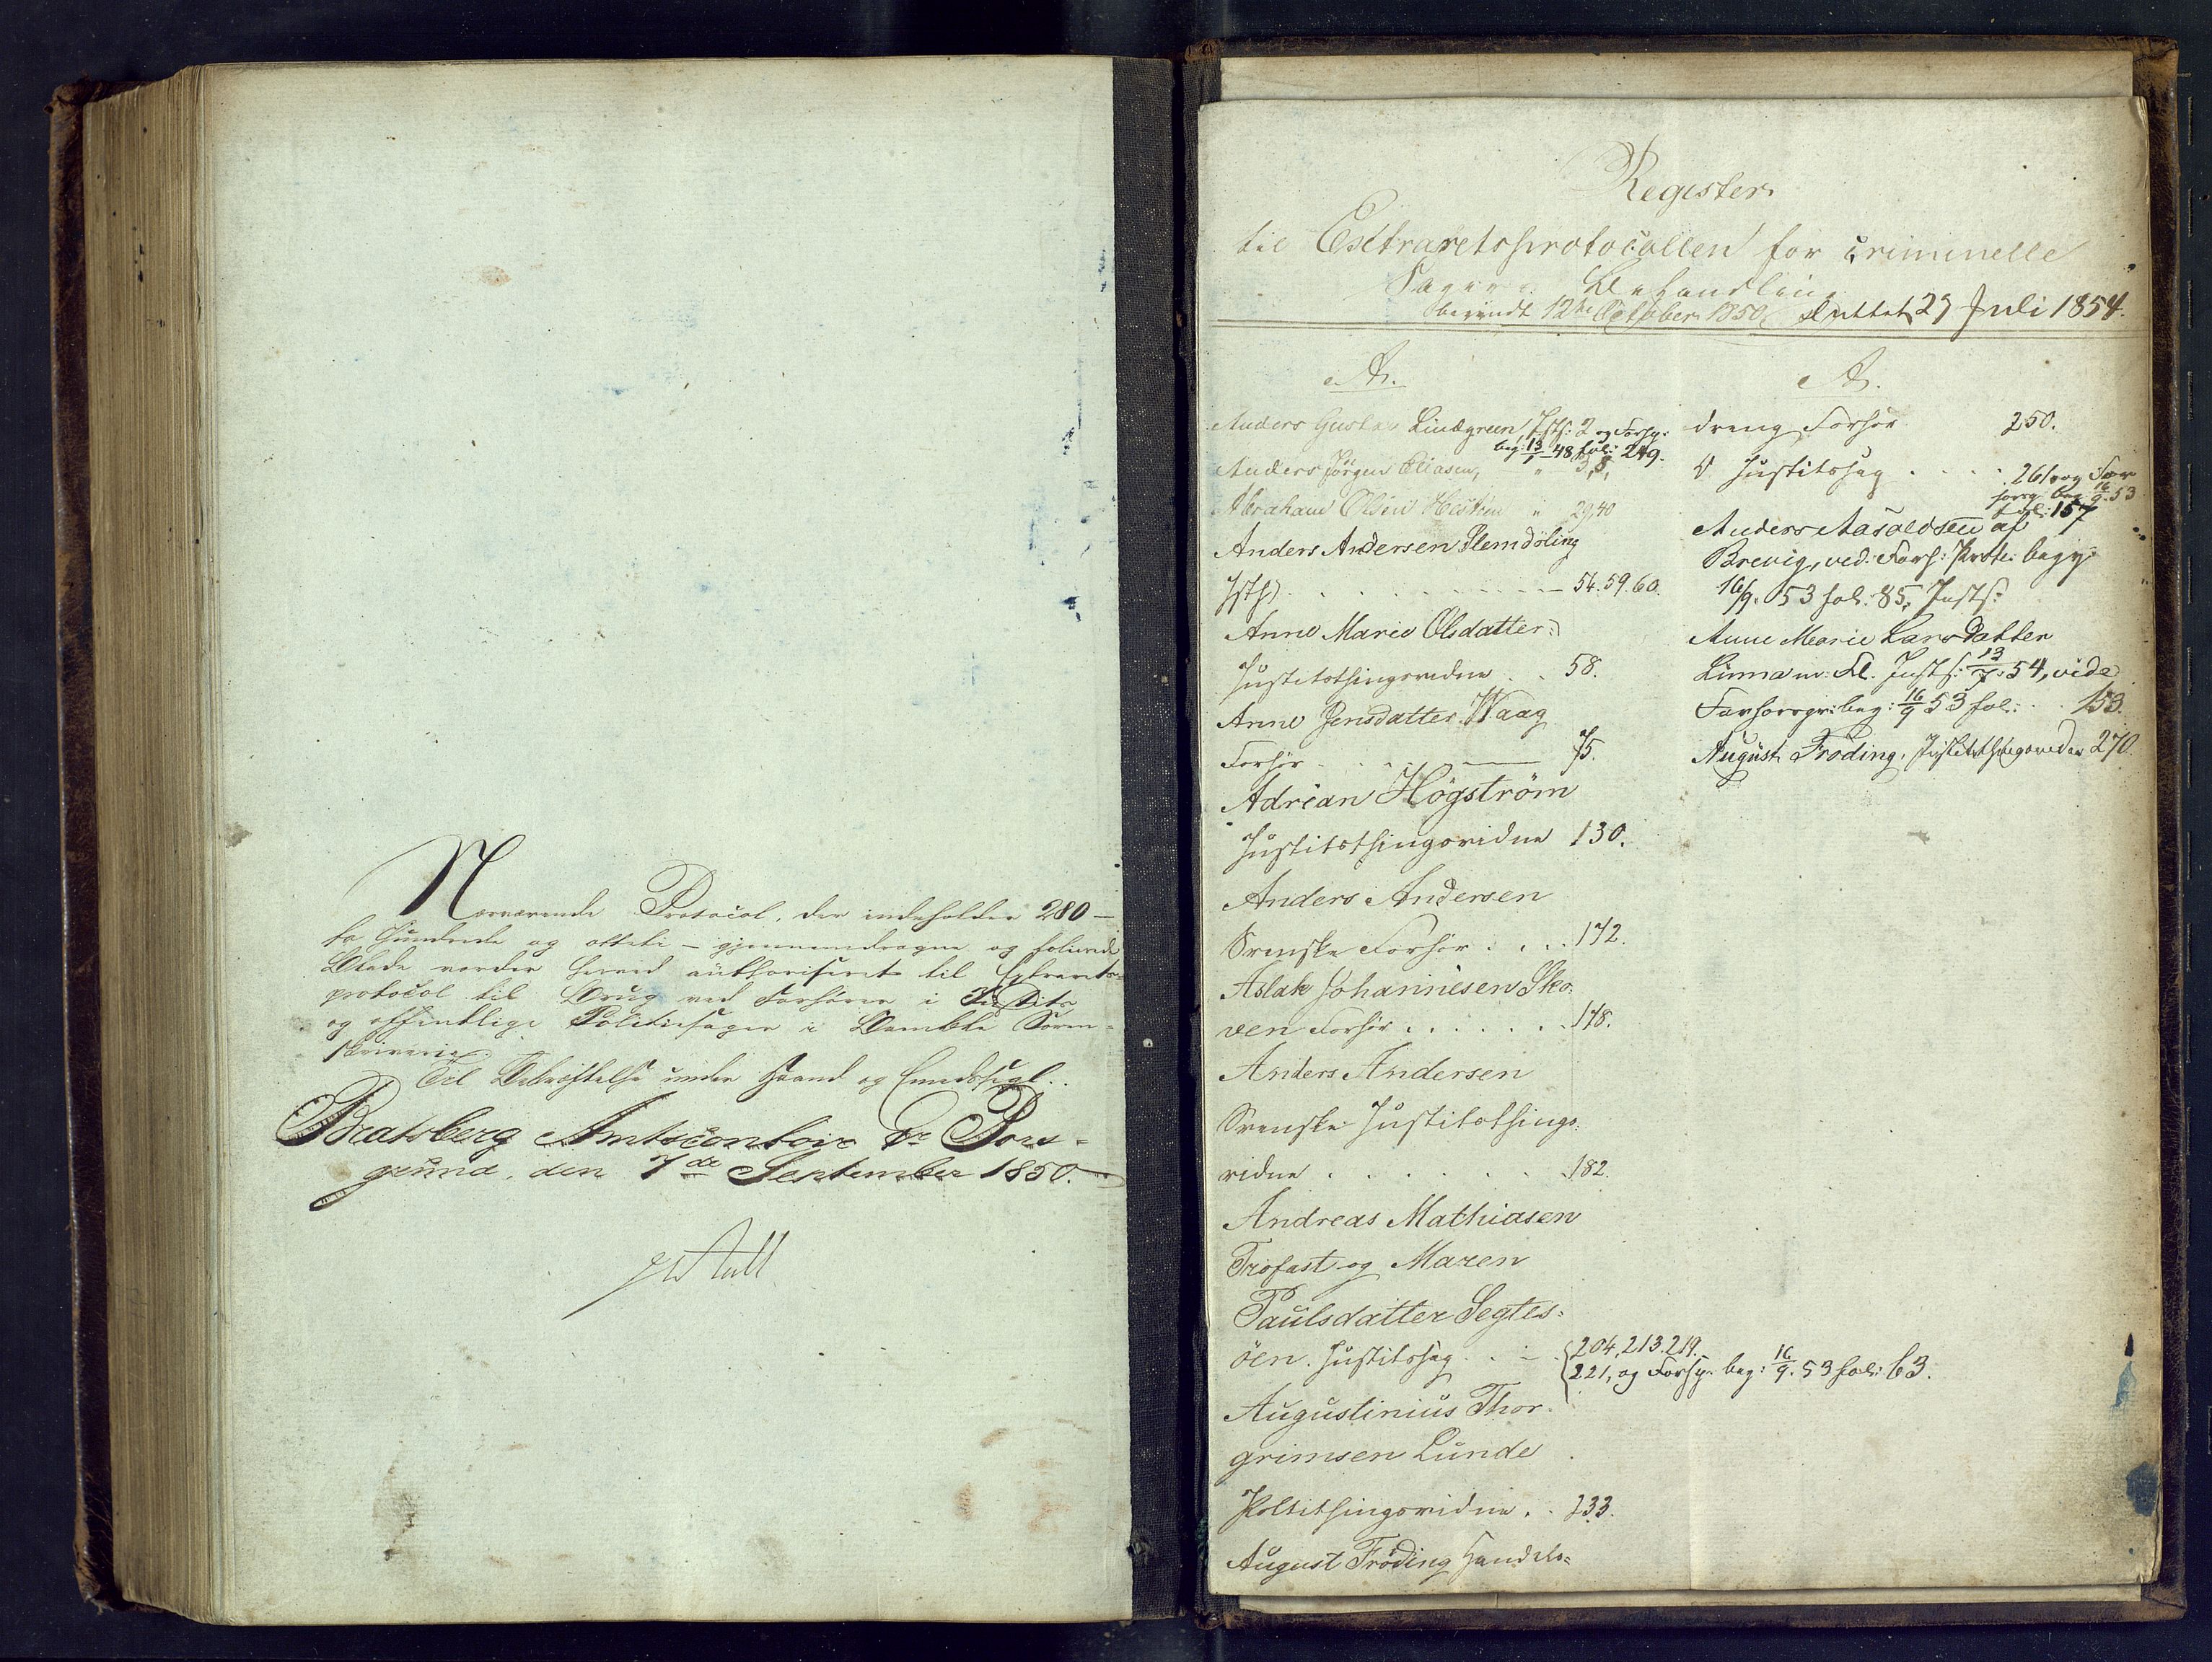 Nærværende Protocol, der indeholder 280 —
to Hundrede og otteti — gjennemdragne og folierede
Blade vorder herved authoriseret til Extrarets-
protocol til Brug ved Forhører i Justits
og offentlige Politiesager i Bamble Soren-
skriverie.
Til Bekræftelse under Haand og Embedssegl.
Bratsberg Amtscontoir pr Pors-
grund, den 7de September 1850.
Aall
Register
til Extraretsprotocollen for criminelle
Sagers Behandling
begyndt 12te October 1850, sluttet 29 Juli 1854.
A.
Anders Gustav Lindgreen, Jsts: 2 og Forhp:
beg: 13/1-48 fol: 249.
Anders Jörgen Eliasen, " 3,5,
Abraham Olsen " 29,40
Anders Andersen Slemdöling
Jsts. 54. 59. 60.
Anne Marie Olsdatter
Justitsthingsvidne . . 58.
Anne Jensdatter Waag
Forhör 75.
Adrian Högström
Justitsthingsvidne 130.
Anders Andersen
Svenske Forhör . . . 172.
Aslak Johannesen Sko-
ven Forhör . . . . . . 178.
Anders Andersen
Svenske Justitsthings-
vidne . . . . . . 182.
Andreas Mathiasen
Trofast og Maren
Paulsdatter Segtes-
öen. Justitssag . . { 204, 213. 219.
221, og Forhp. beg: 16/9. 53 fol: 63.
Augustinius Thor-
grimsen Lunde
Politithingsvidne . . 233.
August Fröding Handels-
A.
dreng Forhör 250.
d Justitssag . . . . 261, og For
horsp. beg: 16/9. 53
fol: 157
Anders Aasoldsen af
Brevig, vid: Forh: Prot: begy:
16/9. 53 fol: 85, Justs:
Anne Marie Larsdatter
Linna m: Fl. Justs: 13/7 54, vide
Forhorsp: beg: 16/9 53 fol: . . 153.
August Fröding, Justitsthingsvidne 270.